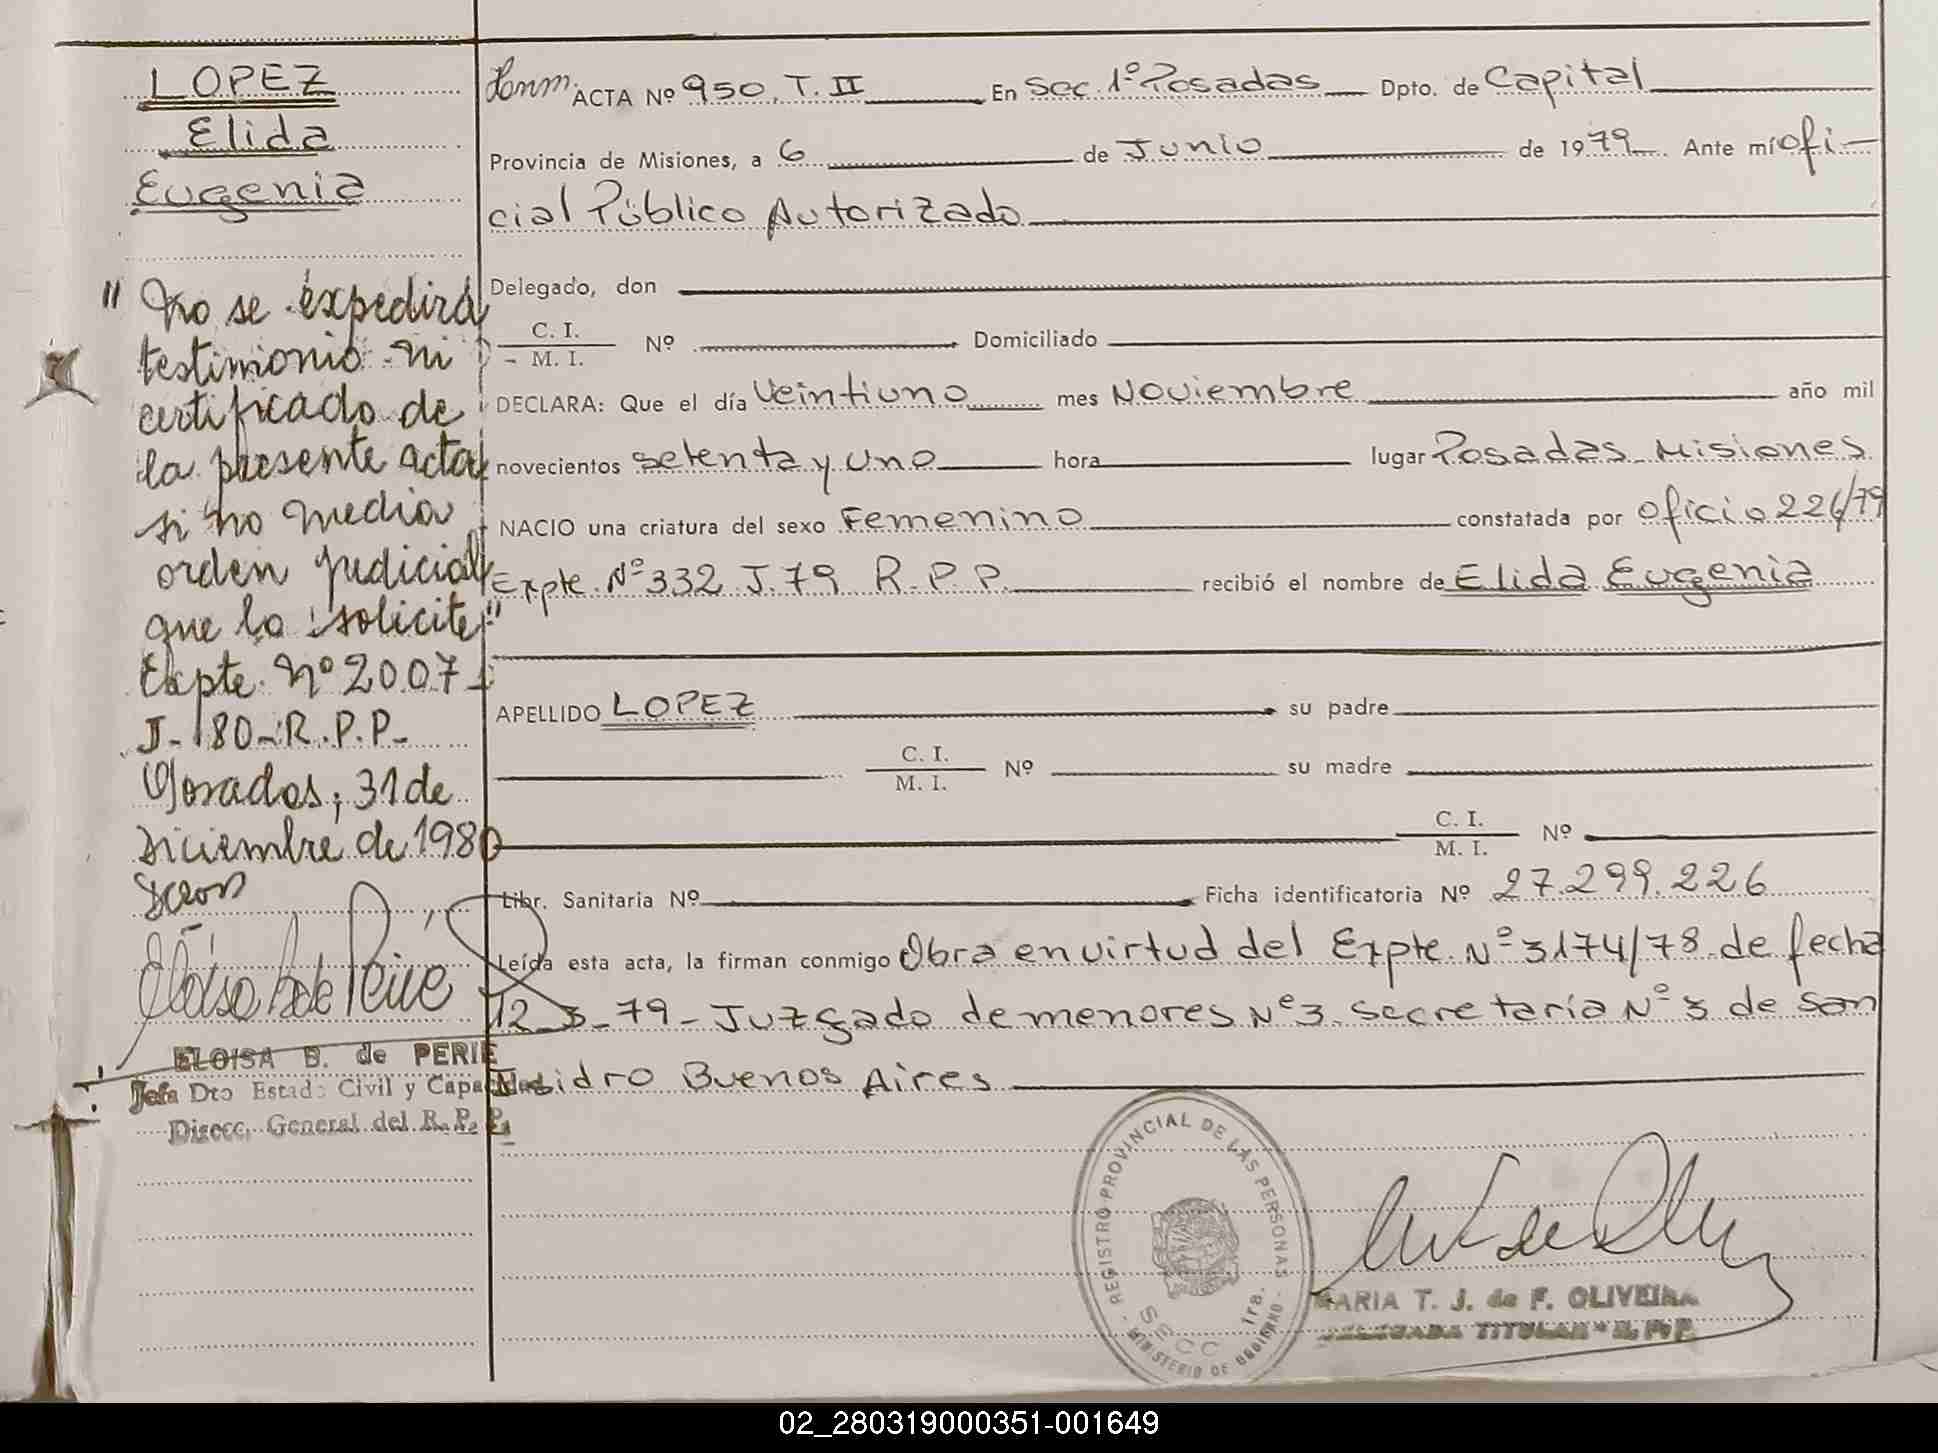 LOPEZ
Elida
Eugenia
" No se expedirá
testimonio ni
certificado de
la presente acta
si no media
orden judicial
que lo solicite"
Expte. Nº 2007-
J-80-R.P.P-
Posadas, 31 de
Diciembre de 1980
ELOISA B. de PERIE
Jefa Dto Estado Civil y Capacidad
Direcc. General del R. P. P.
ACTA Nº 950. T. II En Sec. 1º Posadas Dpto. de Capital
Provincia de Misiones, a 6 de Junio de 1979 Ante mí ofi-
cial Público Autorizado
Delegado, don
C. I.
M. I. Nº Domiciliado
DECLARA: Que el día Veintiuno mes Noviembre año mil
novecientos setenta y uno hora lugar Posadas Misiones
NACIO una criatura del sexo Femenino constatada por oficio 226/79
Expte. Nº 332 J. 79 R.P.P. recibió el nombre de Elida Eugenia
APELLIDO LOPEZ su padre
C. I.
M. I. Nº su madre
C. I.
M. I. Nº
Libr. Sanitaria Nº Ficha identificatoria Nº 27.299.226
Leída esta acta, la firman conmigo Obra en virtud del Expte. Nº 3174/78 de fecha
12_3_79- Juzgado de menores Nº 3 secretaría Nº 3 de San
Isidro Buenos Aires
REGISTRO PROVINCIAL DE LAS PERSONAS
SECC 1ra.
MINISTERIO DE GOBIERNO
MARIA T. J. de F. OLIVEIRA
DELEGADA TITULAR R. P. P.
02_280319000351-001649